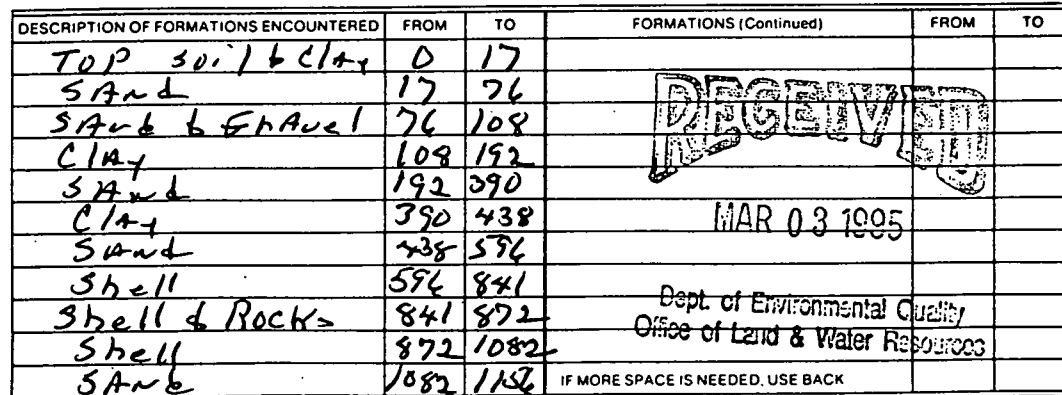 DESCRIPTION OF FORMATIONS ENCOUNTERED FROM TO FORMATIONS (Continued) FROM TO
TOP soil & Clay 0 17
SAnd 17 76
SAnd & GrAvel 76 108
ClAy 108 192
SAnd 192 390
ClAy 390 438
SAnd 438 596
Shell 596 841
Shell & Rocks 841 872
Shell 872 1082
SAnd 1082 1156
RECEIVED
MAR 03 1995
Dept. of Environmental Quality
Office of Land & Water Resources
IF MORE SPACE IS NEEDED, USE BACK